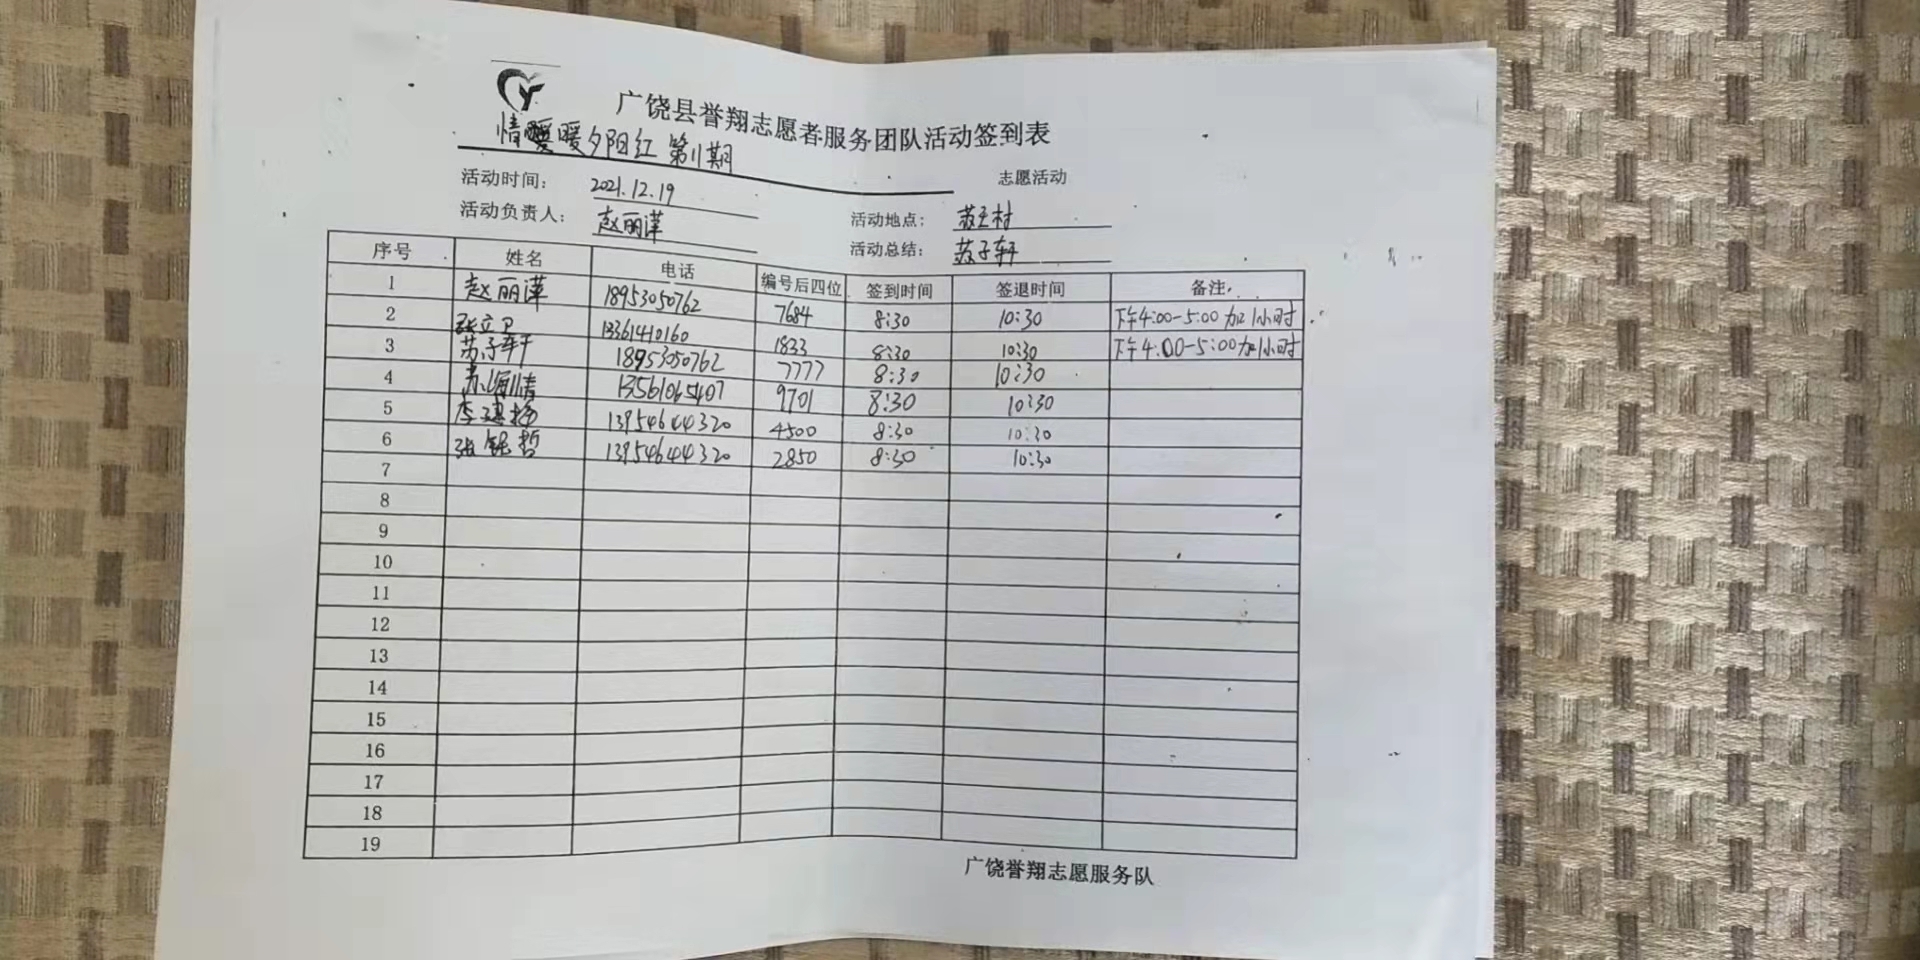 广饶县誉翔志愿者服务团队活动签到表
情暖暖夕阳红 第11期
志愿活动
活动时间: 2021.12.19
活动负责人: 赵丽萍 活动地点: 苏王村
活动总结: 苏子轩
序号 姓名 电话 编号后四位 签到时间 签退时间 备注
1 赵丽萍 18953050762 7684 8:30 10:30 下午4:00-5:00加1小时
2 张立卫 13361410160 1833 8:30 10:30 下午4:00-5:00加1小时
3 苏子轩 18953050762 7777 8:30 10:30
4 苏海情 13561065407 9701 8:30 10:30
5 李建扬 13954644320 4500 8:30 10:30
6 张铭哲 13954644320 2850 8:30 10:30
7
8
9
10
11
12
13
14
15
16
17
18
19
广饶誉翔志愿服务队